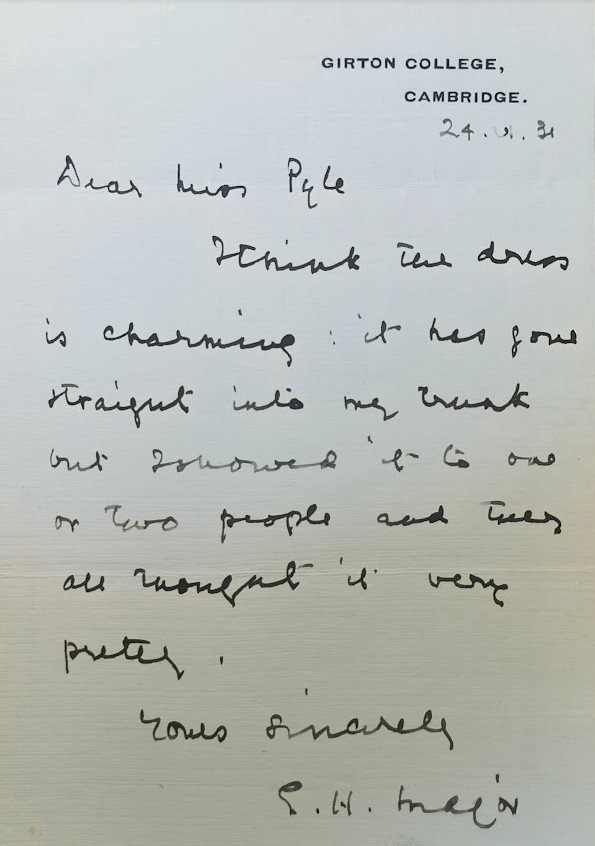 GIRTON COLLEGE,
CAMBRIDGE.
24.vi.31
Dear Miss Pyle
I think the dress
is charming : it has gone
straight into my trunk
but I showed it to one
or two people and they
all thought it very
pretty.
Yours sincerely
E. H. Major